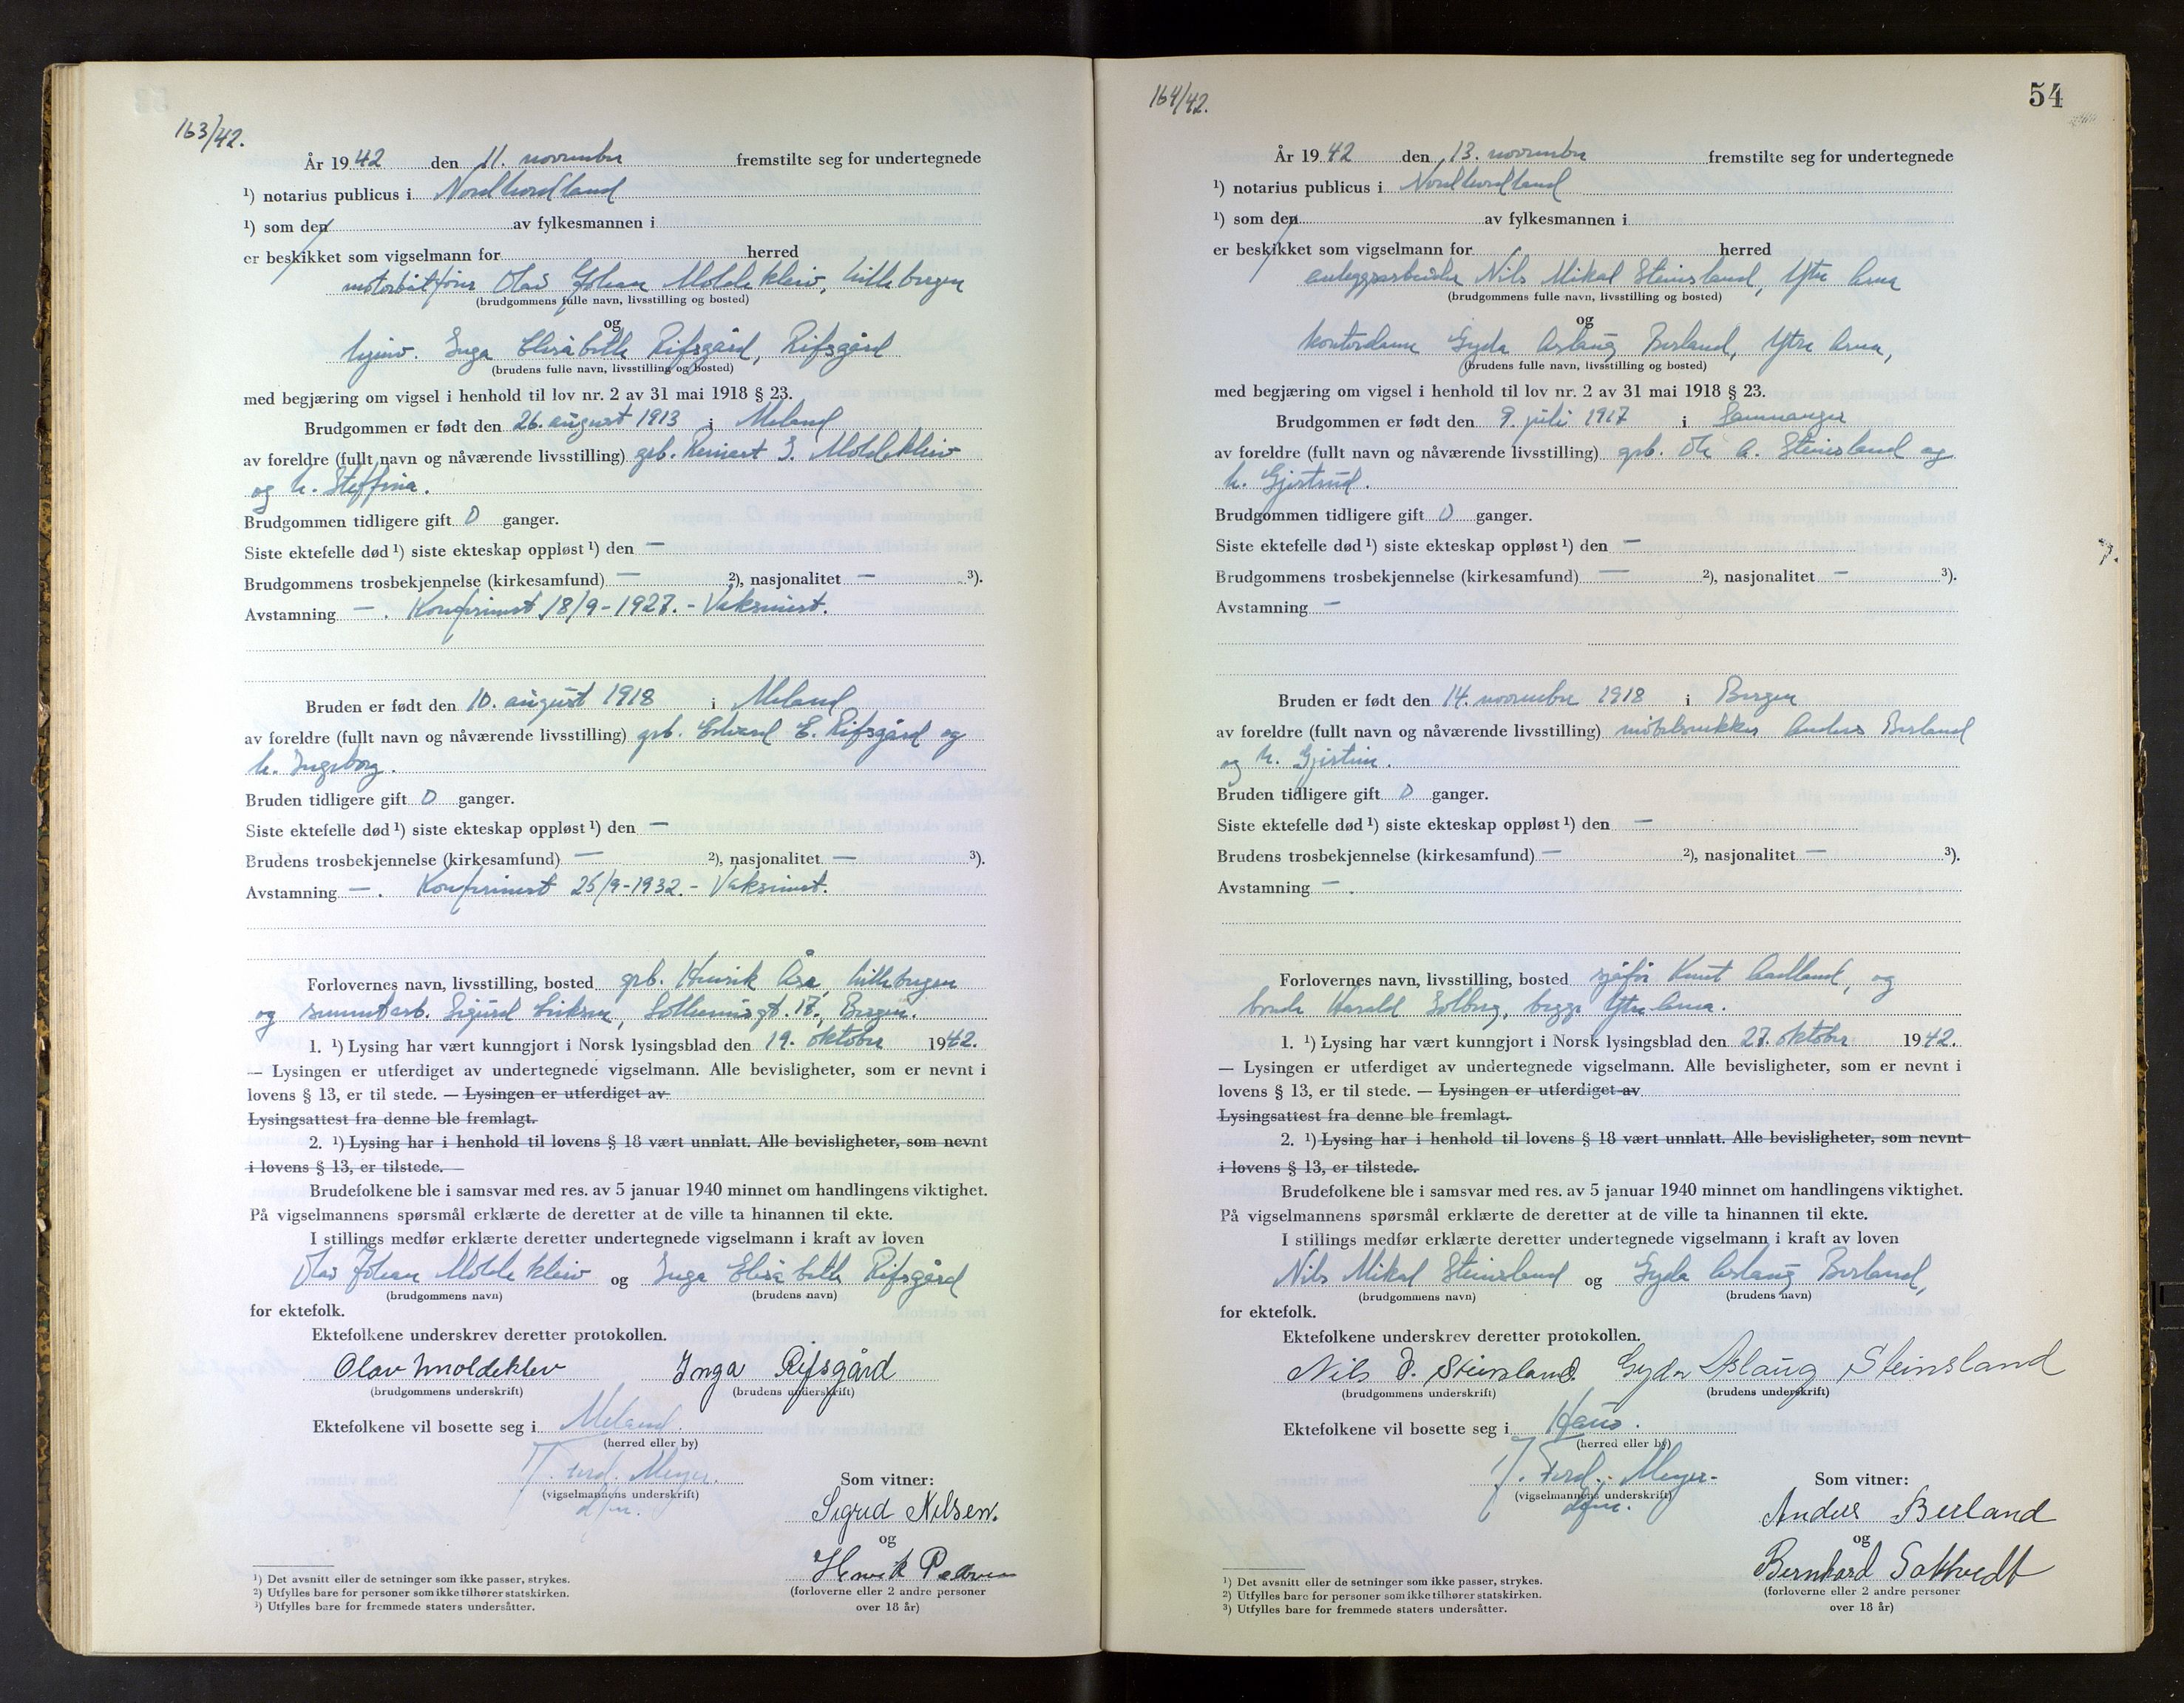 163/42.
År 1942 den 11. november fremstilte seg for undertegnede
¹) notarius publicus i Nordhordland
¹) som den av fylkesmannen i
er beskikket som vigselmann for herred
motorbåtfører Olav Johan Moldekleiv, Litlebergen
(brudgommens fulle navn, livsstilling og bosted)
og
hjemv. Inga Elisabeth Rifsgård, Rifsgård
(brudens fulle navn, livsstilling og bosted)
med begjæring om vigsel i henhold til lov nr. 2 av 31 mai 1918 § 23.
Brudgommen er født den 26. august 1913 i Meland
av foreldre (fullt navn og nåværende livsstilling) grb. Reinert J. Moldekleiv
og h. Steffina.
Brudgommen tidligere gift 0 ganger.
Siste ektefelle død ¹) siste ekteskap oppløst ¹) den —
Brudgommens trosbekjennelse (kirkesamfund) — ²), nasjonalitet — ³).
Avstamning — . Konfirmert 18/9-1927. - Vaksinert.
Bruden er født den 10. august 1918 i Meland
av foreldre (fullt navn og nåværende livsstilling) grb. Edvard E. Rifsgård og
h. Ingeborg.
Bruden tidligere gift 0 ganger.
Siste ektefelle død ¹) siste ekteskap oppløst ¹) den —
Brudens trosbekjennelse (kirkesamfund) — ²), nasjonalitet — ³).
Avstamning — . Konfirmert 25/9-1932. - Vaksinert.
Forlovernes navn, livsstilling, bosted grb. Henrik Åse, Litlebergen
og sementarb. Sigurd Eriksen, Solheimsgt. 17, Bergen.
1. ¹) Lysing har vært kunngjort i Norsk lysingsblad den 19. oktober 1942.
— Lysingen er utferdiget av undertegnede vigselmann. Alle bevisligheter, som er nevnt i
lovens § 13, er til stede. — Lysingen er utferdiget av
Lysingsattest fra denne ble fremlagt.
2. ¹) Lysing har i henhold til lovens § 18 vært unnlatt. Alle bevisligheter, som nevnt
i lovens § 13, er tilstede. —
Brudefolkene ble i samsvar med res. av 5 januar 1940 minnet om handlingens viktighet.
På vigselmannens spørsmål erklærte de deretter at de ville ta hinannen til ekte.
I stillings medfør erklærte deretter undertegnede vigselmann i kraft av loven
Olav Johan Moldekleiv og Inga Elisabeth Rifsgård
(brudgommens navn) (brudens navn)
for ektefolk.
Ektefolkene underskrev deretter protokollen.
Olav Moldeklev Inga Rifsgård
(brudgommens underskrift) (brudens underskrift)
Ektefolkene vil bosette seg i Meland
(herred eller by)
J. Ferd. Meyer.
(vigselmannens underskrift)
dfm.
Som vitner:
Sigrid Nilsen.
og
Henrik
(forloverne eller 2 andre personer
over 18 år)
¹) Det avsnitt eller de setninger som ikke passer, strykes.
²) Utfylles bare for personer som ikke tilhører statskirken.
³) Utfylles bare for fremmede staters undersåtter.
164/42.
54
År 1942 den 13. november fremstilte seg for undertegnede
¹) notarius publicus i Nordhordland
¹) som den av fylkesmannen i
er beskikket som vigselmann for herred
anleggsarbeider Nils Mikal Steinsland, Ytre Arna
(brudgommens fulle navn, livsstilling og bosted)
og
kontordame Gyda Aslaug Berland, Ytre Arna,
(brudens fulle navn, livsstilling og bosted)
med begjæring om vigsel i henhold til lov nr. 2 av 31 mai 1918 § 23.
Brudgommen er født den 9. juli 1917 i Samnanger
av foreldre (fullt navn og nåværende livsstilling) grb. Ole A. Steinsland og
h. Gjertrud.
Brudgommen tidligere gift 0 ganger.
Siste ektefelle død ¹) siste ekteskap oppløst ¹) den —
Brudgommens trosbekjennelse (kirkesamfund) — ²), nasjonalitet — ³).
Avstamning —
Bruden er født den 14. november 1918 i Bergen
av foreldre (fullt navn og nåværende livsstilling) møbelsnekker Anders Berland
og h. Gjertine.
Bruden tidligere gift 0 ganger.
Siste ektefelle død ¹) siste ekteskap oppløst ¹) den —
Brudens trosbekjennelse (kirkesamfund) — ²), nasjonalitet — ³).
Avstamning — .
Forlovernes navn, livsstilling, bosted sjåfør Knut Aadland, og
bonde Harald Solberg, begge Ytre Arna.
1. ¹) Lysing har vært kunngjort i Norsk lysingsblad den 27. oktober 1942.
— Lysingen er utferdiget av undertegnede vigselmann. Alle bevisligheter, som er nevnt i
lovens § 13, er til stede. — Lysingen er utferdiget av
Lysingsattest fra denne ble fremlagt.
2. ¹) Lysing har i henhold til lovens § 18 vært unnlatt. Alle bevisligheter, som nevnt
i lovens § 13, er tilstede.
Brudefolkene ble i samsvar med res. av 5 januar 1940 minnet om handlingens viktighet.
På vigselmannens spørsmål erklærte de deretter at de ville ta hinannen til ekte.
I stillings medfør erklærte deretter undertegnede vigselmann i kraft av loven
Nils Mikal Steinsland og Gyda Aslaug Berland,
(brudgommens navn) (brudens navn)
for ektefolk.
Ektefolkene underskrev deretter protokollen.
Nils O. Steinsland. Gyda Aslaug Steinsland
(brudgommens underskrift) (brudens underskrift)
Ektefolkene vil bosette seg i Haus.
(herred eller by)
J. Ferd. Meyer-
(vigselmannens underskrift)
dfm.
Som vitner:
Anders Berland
og
Bernhard
(forloverne eller 2 andre personer
over 18 år)
¹) Det avsnitt eller de setninger som ikke passer, strykes.
²) Utfylles bare for personer som ikke tilhører statskirken.
³) Utfylles bare for fremmede staters undersåtter.